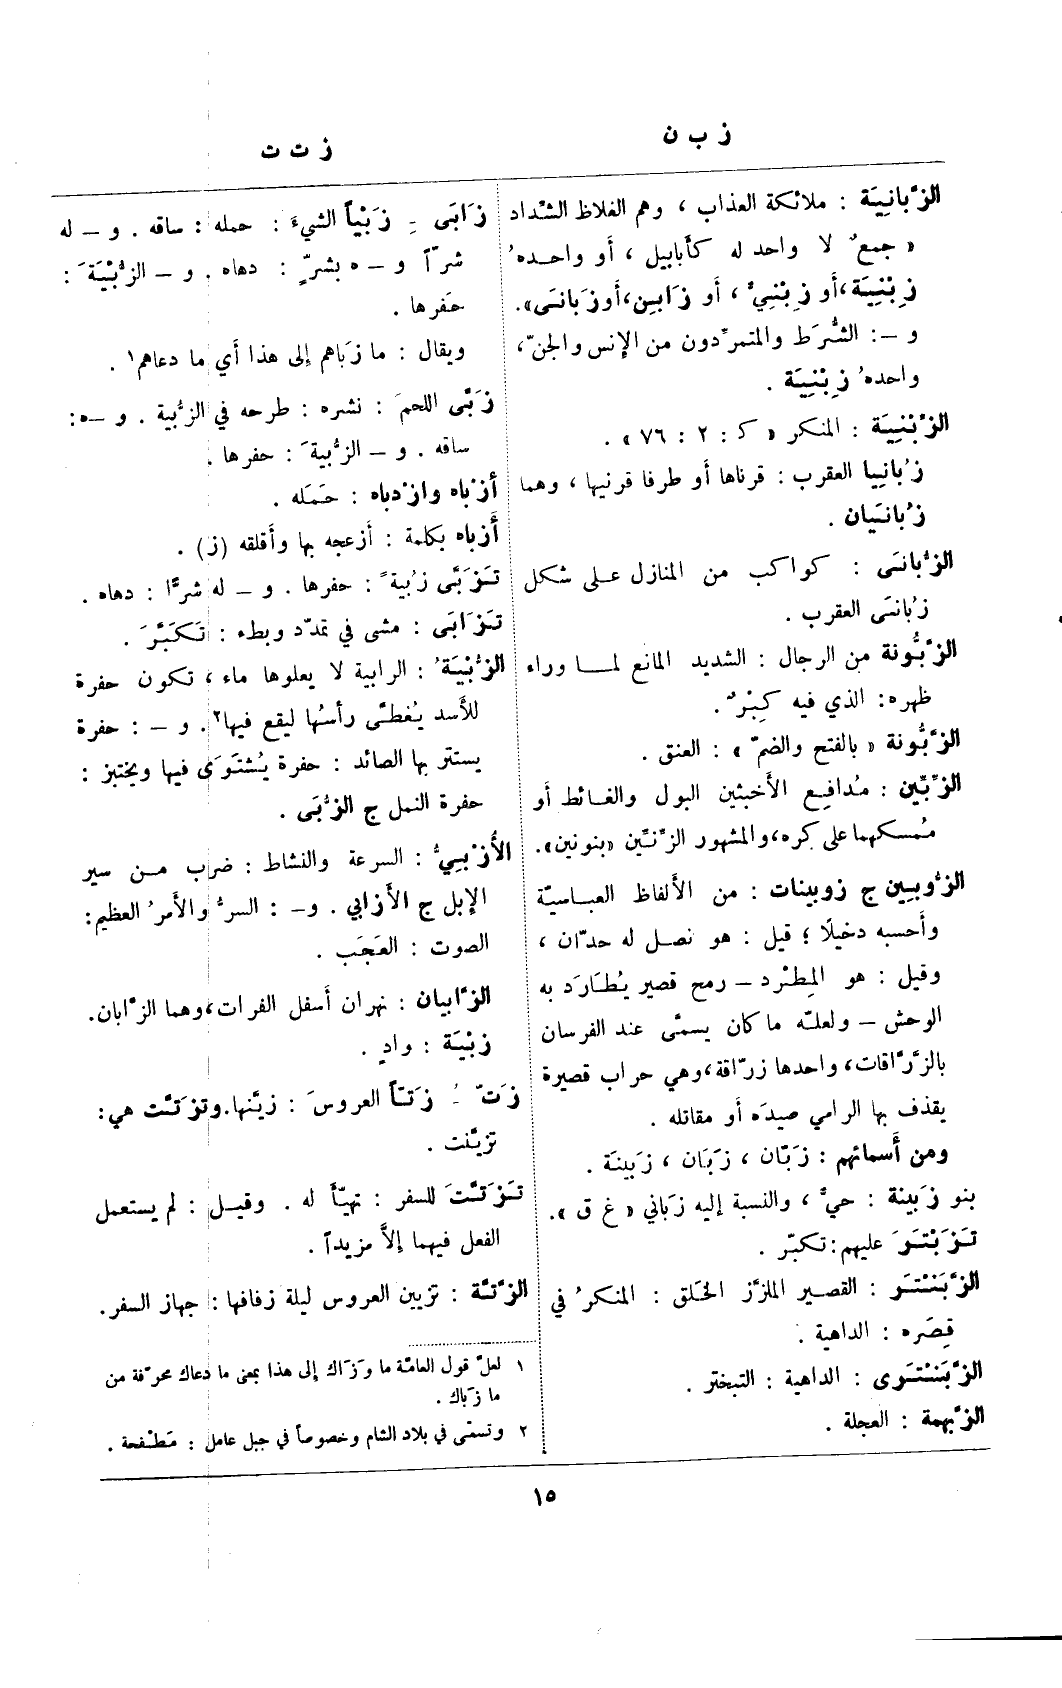 ز ب ن
ز ت ت
الزَّبانِيَة : ملائكة العذاب ، وهم الغلاظ الشّداد
« جمعٌ لا واحد له كأبابيل ، أو واحـدهُ
زِبْنِيَة ، أو زِبْنِيٌّ ، أو زَابِن ، أو زَبانَى ».
و – : الشُّرَط والمتمرّدون من الإنس والجنّ ،
واحدهُ زِبْنِيَة .
الزَّبْنِيَة : المنكر « كـ : ٢ : ٧٦ » .
زُبانِيا العقرب : قرناها أو طرفا قرنيها ، وهما
زُبانَيان .
الزُّبانَى : كواكب من المنازل على شكل
زُبانَى العقرب .
الزَّبُّونة من الرجال : الشديد المانع لمـا وراء
ظهره : الذي فيه كِبْرٌ .
الزَّبُّونة « بالفتح والضمّ » : العنق .
الزِّبِّين : مُدافِع الأخبثين البول والغـائط أو
مُمسكهما على كره ، والمشهور الزِّنِّين « بنونين ».
الزُّوبِين ج زوبينات : من الألفاظ العبـاسيّة
وأحسبه دخيلًا ؛ قيل : هو نصـل له حدّان ،
وقيل : هو المِطْرد – رمح قصير يُطَارَد به
الوحش – ولعلّه ما كان يسمّى عند الفرسان
بالزَّرّاقات ، واحدها زرّاقة ، وهي حراب قصيرة
يقذف بها الرامي صيدَه أو مقاتله .
ومن أسمائهم : زَبّان ، زَبَان ، زَبِينَة .
بنو زَبِينة : حيٌّ ، والنسبة إليه زَباني « غ ق ».
تَزَبْتَرَ عليهم : تكبّر .
الزَّبَنْتَر : القصير الملزَّز الخَلق : المنكرُ في
قِصَره : الداهية .
الزَّبَنْتَرى : الداهية : التبختر .
الزَّبهمة : العجلة .
زَابَى ِ زَبْياً الشيءَ : حمله : ساقه . و – له
شرّاً و – ه بشرٍّ : دهاه . و – الزُّبْيَةَ :
حَفرها .
ويقال : ما زَباهم إلى هذا أي ما دعاهم١ .
زَبَّى اللحمَ : نشره : طرحه في الزُّبية . و – ه :
ساقه . و – الزُّبيةَ : حفرها .
أزْباه وازْدباه : حَمَله .
أَزباه بكلمة : أزعجه بها وأقلقه (ز) .
تَزَبَّى زُبيةً : حفرها . و – له شرًّا : دهاه .
تَزَابَى : مشى في تمدّد وبطء : تَكَبَّرَ .
الزُّبْيَةُ : الرابية لا يعلوها ماء ، تكون حفرة
للأسد يُغطّى رأسُها ليقع فيها٢ . و – : حفرة
يستتر بها الصائد : حفرة يُشتَوَى فيها ويختبز :
حفرة النمل ج الزُّبَى .
الأزْبِيُّ : السرعة والنشاط : ضرب مـن سير
الإبل ج الأزابي . و – : السرُّ والأمرُ العظيم :
الصوت : العَجَب .
الزَّابيان : نهران أسفل الفرات ، وهما الزّابان .
زبْيَة : وادٍ .
زَتّ ُ زَتّاً العروسَ : زيّنها . وتزَتّتت هي :
تزيّنت .
تَزَتَّتَ للسفر : تهيّأ له . وقيـل : لم يستعمل
الفعل فيهما إلاَّ مزيداً .
الزَّتّة : تزيين العروس ليلة زفافها : جهاز السفر .
١ لعلّ قول العامّة ما وَزَاك إلى هذا بمعنى ما دعاك محرّفة من
ما زَباك .
٢ وتسمّى في بلاد الشام وخصوصاً في جبل عامل : مَطْنفحة .
١٥